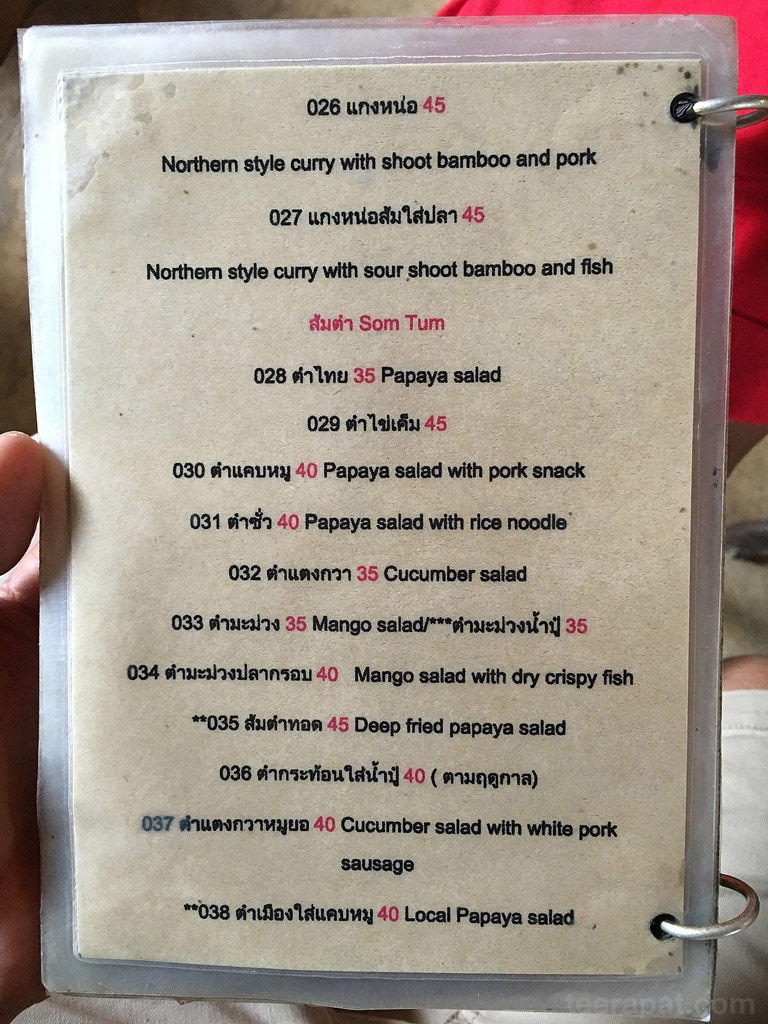 026 แกงหน่อ 45
Northern style curry with shoot bamboo and pork
027 แกงหน่อส้มใส่ปลา 45
Northern style curry with sour shoot bamboo and fish
ส้มตำ Som Tum
028 ตำไทย 35 Papaya salad
029 ตำไข่เค็ม 45
030 ตำแคบหมู 40 Papaya salad with pork snack
031 ตำซั่ว 40 Papaya salad with rice noodle
032 ตำแตงกวา 35 Cucumber salad
033 ตำมะม่วง 35 Mango salad/***ตำมะม่วงน้ำปู๋ 35
034 ตำมะม่วงปลากรอบ 40 Mango salad with dry crispy fish
**035 ส้มตำทอด 45 Deep fried papaya salad
036 ตำกระท้อนใส่น้ำปู๋ 40 ( ตามฤดูกาล)
037 ตำแตงกวาหมูยอ 40 Cucumber salad with white pork
sausage
**038 ตำเมืองใส่แคบหมู 40 Local Papaya salad
teerapat.com